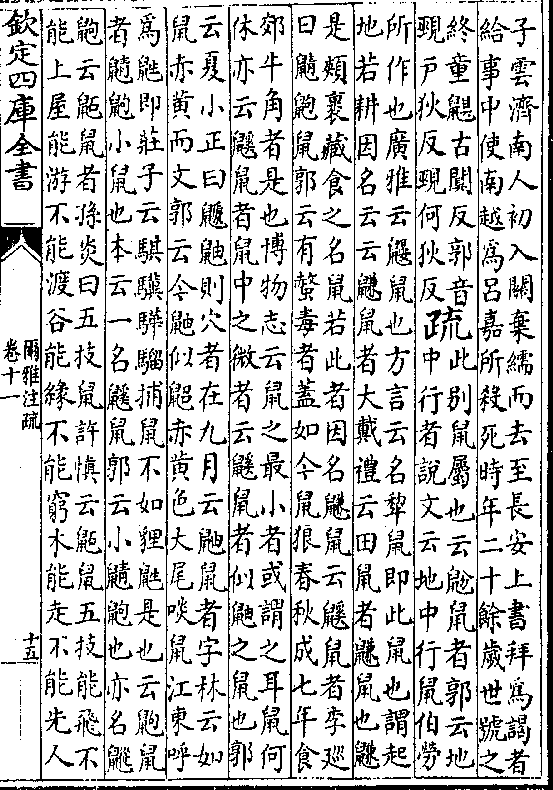 子雲濟南人初入關棄繻而去至長安上書拜爲謁者
給事中使南越爲呂嘉所殺死時年二十餘歲世號之
終童鼮古闃反郭音
覡戶狄反覡何狄反
疏
此別鼠屬也云鼢鼠者郭云地
中行者說文云地中行鼠伯勞
所作也廣雅云鼴鼠也方言云名犂鼠即此鼠也謂起
地若耕因名云云鼸鼠者大戴禮云田鼠者鼸鼠也鼸
是頰裏藏食之名鼠若此者因名鼸鼠云鼷鼠者李巡
曰鼱鼩鼠郭云有螫毒者蓋如今鼠狼春秋成七年食
郊牛角者是也博物志云鼠之最小者或謂之耳鼠何
休亦云鼷鼠者鼠中之微者云鼷鼠者似鼬之鼠也郭
云夏小正曰鼶鼬則穴者在九月云鼬鼠者字林云如
鼠赤黃而文郭云今鼬似鼦赤黃色大尾啖鼠江東呼
爲鼪即莊子云騏驥驊騮捕鼠不如狸鼪是也云鼩鼠
者鼱鼩小鼠也本云一名鼷鼠郭云小鼱鼩也亦名䶅
鼩云鼫鼠者孫炎曰五技鼠許愼云鼫鼠五技能飛不
能上屋能游不能渡谷能緣不能窮木能走不能先人
欽定四庫全書
爾雅注疏
卷十一
十五